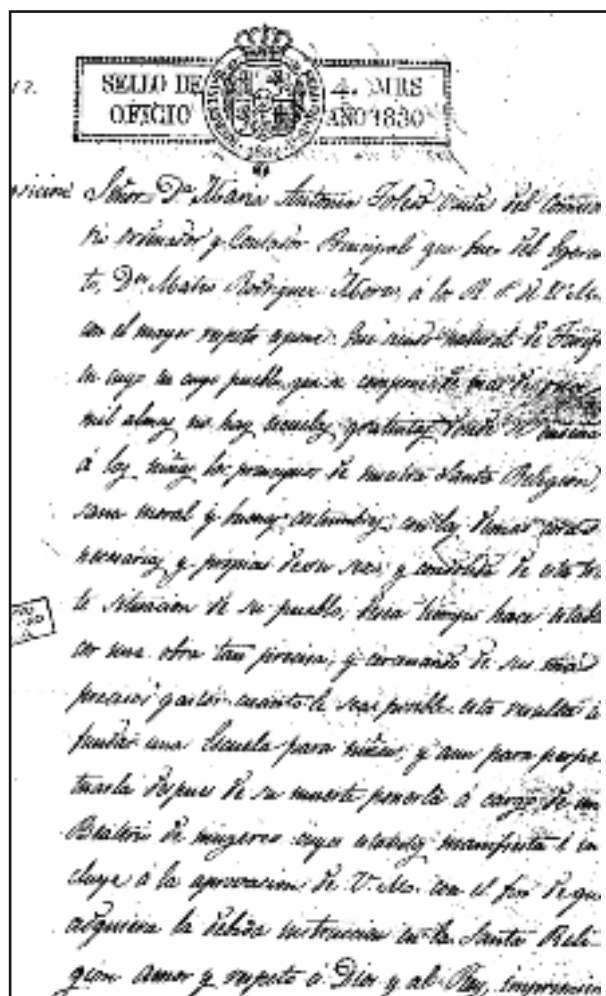 SELLO DE 4. MRS
OFICIO AÑO 1830
Señor. Dª Maria Antonia Toledo viuda del Comisa
rio ordenador y Contador Principal que fue del Egerci
to, Dn Mateo Rodriguez á los R. P. de V. M.
con el mayor respeto expone: Que siendo natural de Tarifa
en cuyo en cuyo pueblo, que se compone de mas de
mil almas, no hay escuelas gratuitas donde se enseñe
á las niñas los principios de nuestra Santa Religion,
sana moral y buenas costumbres, con las demas
necesarias y propias de su sexo, y condolida de esta tris
te situacion de su pueblo, desea tiempo hace estable
cer una obra tan precisa, y cercenando de sus mas
precisos gastos cuanto le sea posible esta resuelta á
fundar una Escuela para niñas, y aun para perpe
tuarla despues de su muerte ponerla á cargo de un
Beaterio de mugeres cuyos estatutos manifiesta é in
cluye á la aprovacion de V. M. con el fin de que
adquiera la debida instruccion en la Santa Reli
gion amor y respeto á Dios y al Rey,